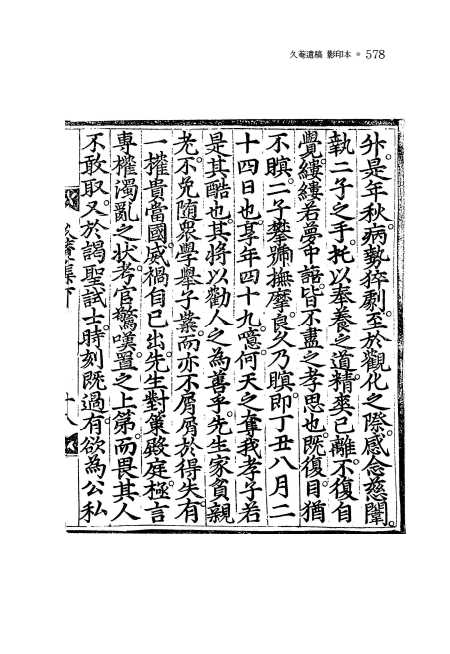 久菴遺稿 影印本 ● 578
外。是年秋。病勢猝劇。至於觀化之際。感念慈闈。
執二子之手。托以奉養之道。精爽已離。不復自
覺。縷縷若夢中語。皆不盡之孝思也。既復目猶
不瞑。二子攀號撫摩。良久乃瞑。即丁丑八月二
十四日也。享年四十九。噫。何天之奪我孝子若
是其酷也。其將以勸人之為善乎。先生家貧親
老。不免随衆學舉子業。而亦不屑屑於得失。有
一擢貴當國。威禍自已出。先生對策殿庭。極言
專權濁亂之状。考官驚嘆。置之上第。而畏其人
不敢取。又於謁聖試士。時刻既過。有欲為公私
十八